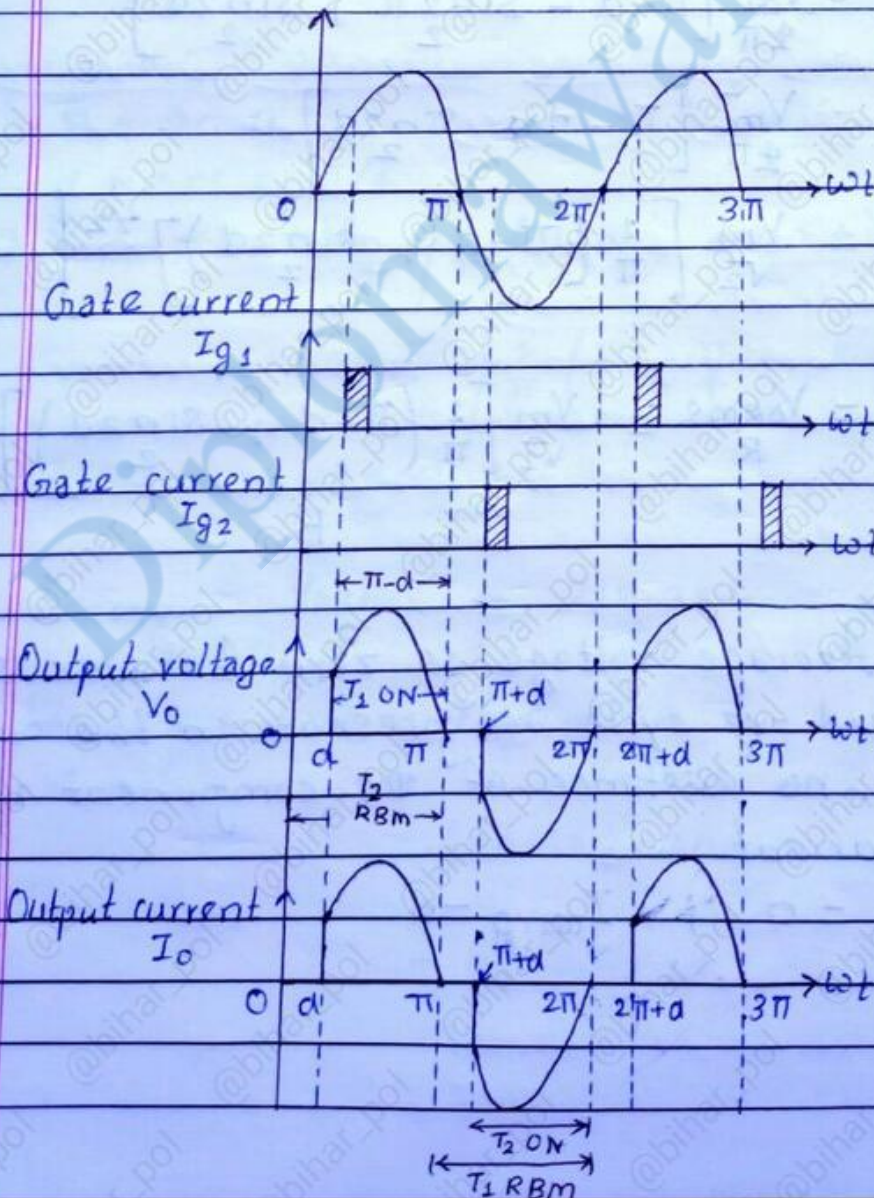 0 π 2π 3π ωt
Gate current
Ig1
ωt
Gate current
Ig2
ωt
π-d
Output voltage
V0
T1 ON
π+d
0 d π 2π 2π+d 3π ωt
T2
RBm
Output current
I0
π+d
0 d π 2π 2π+d 3π ωt
T2 ON
T1 RBm
Diplomawa
@bihar_pol